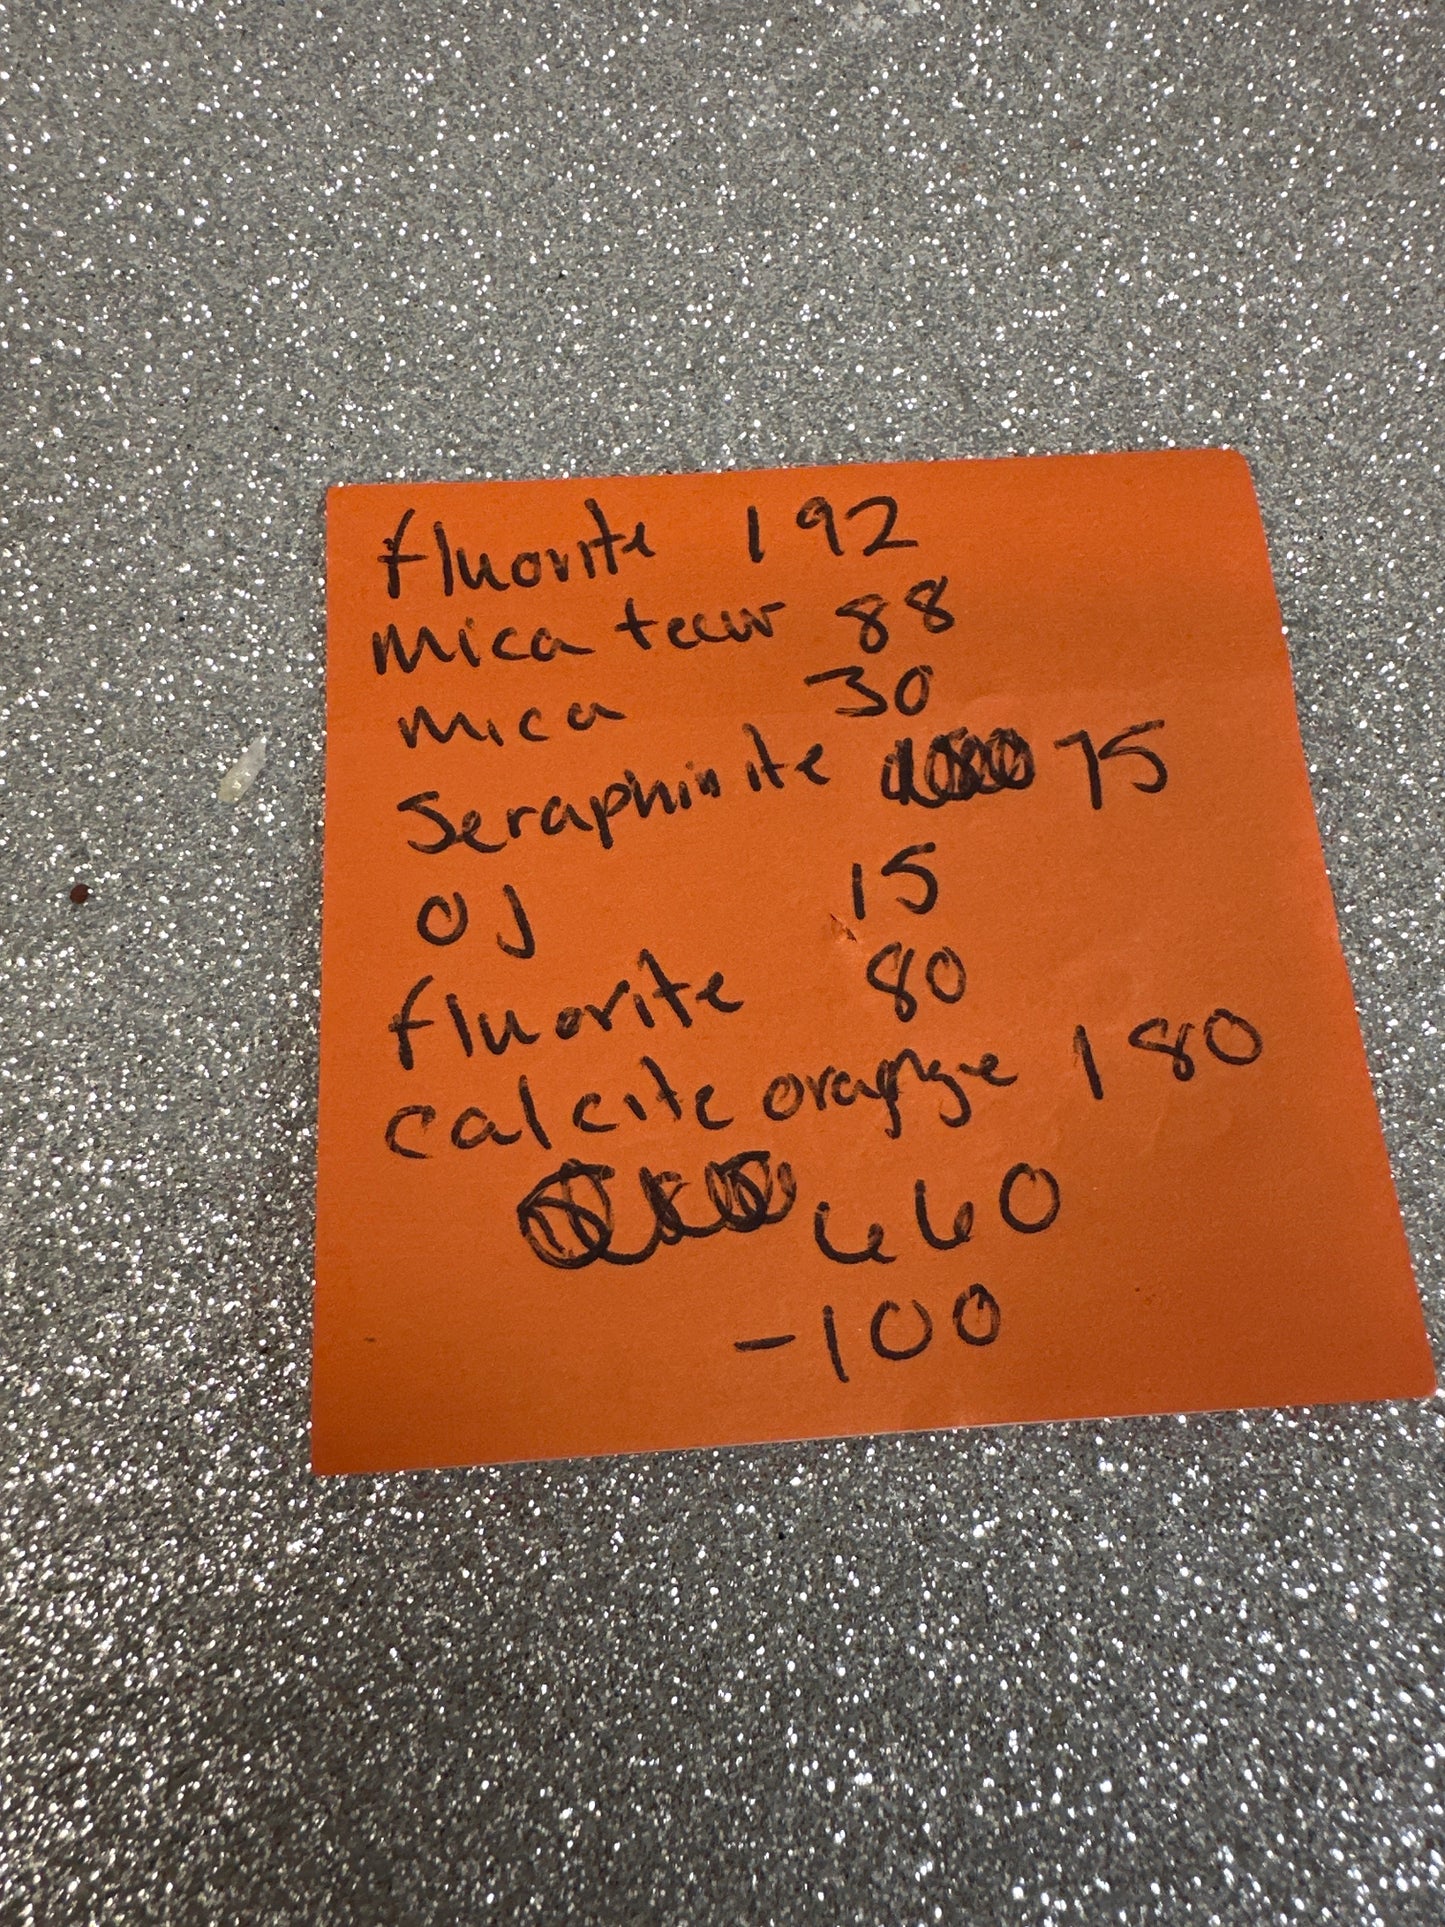 fluorite 192
mica towr 88
mica 30
Seraphinite 75
OJ 15
fluorite 80
calcite orange 180
660
-100